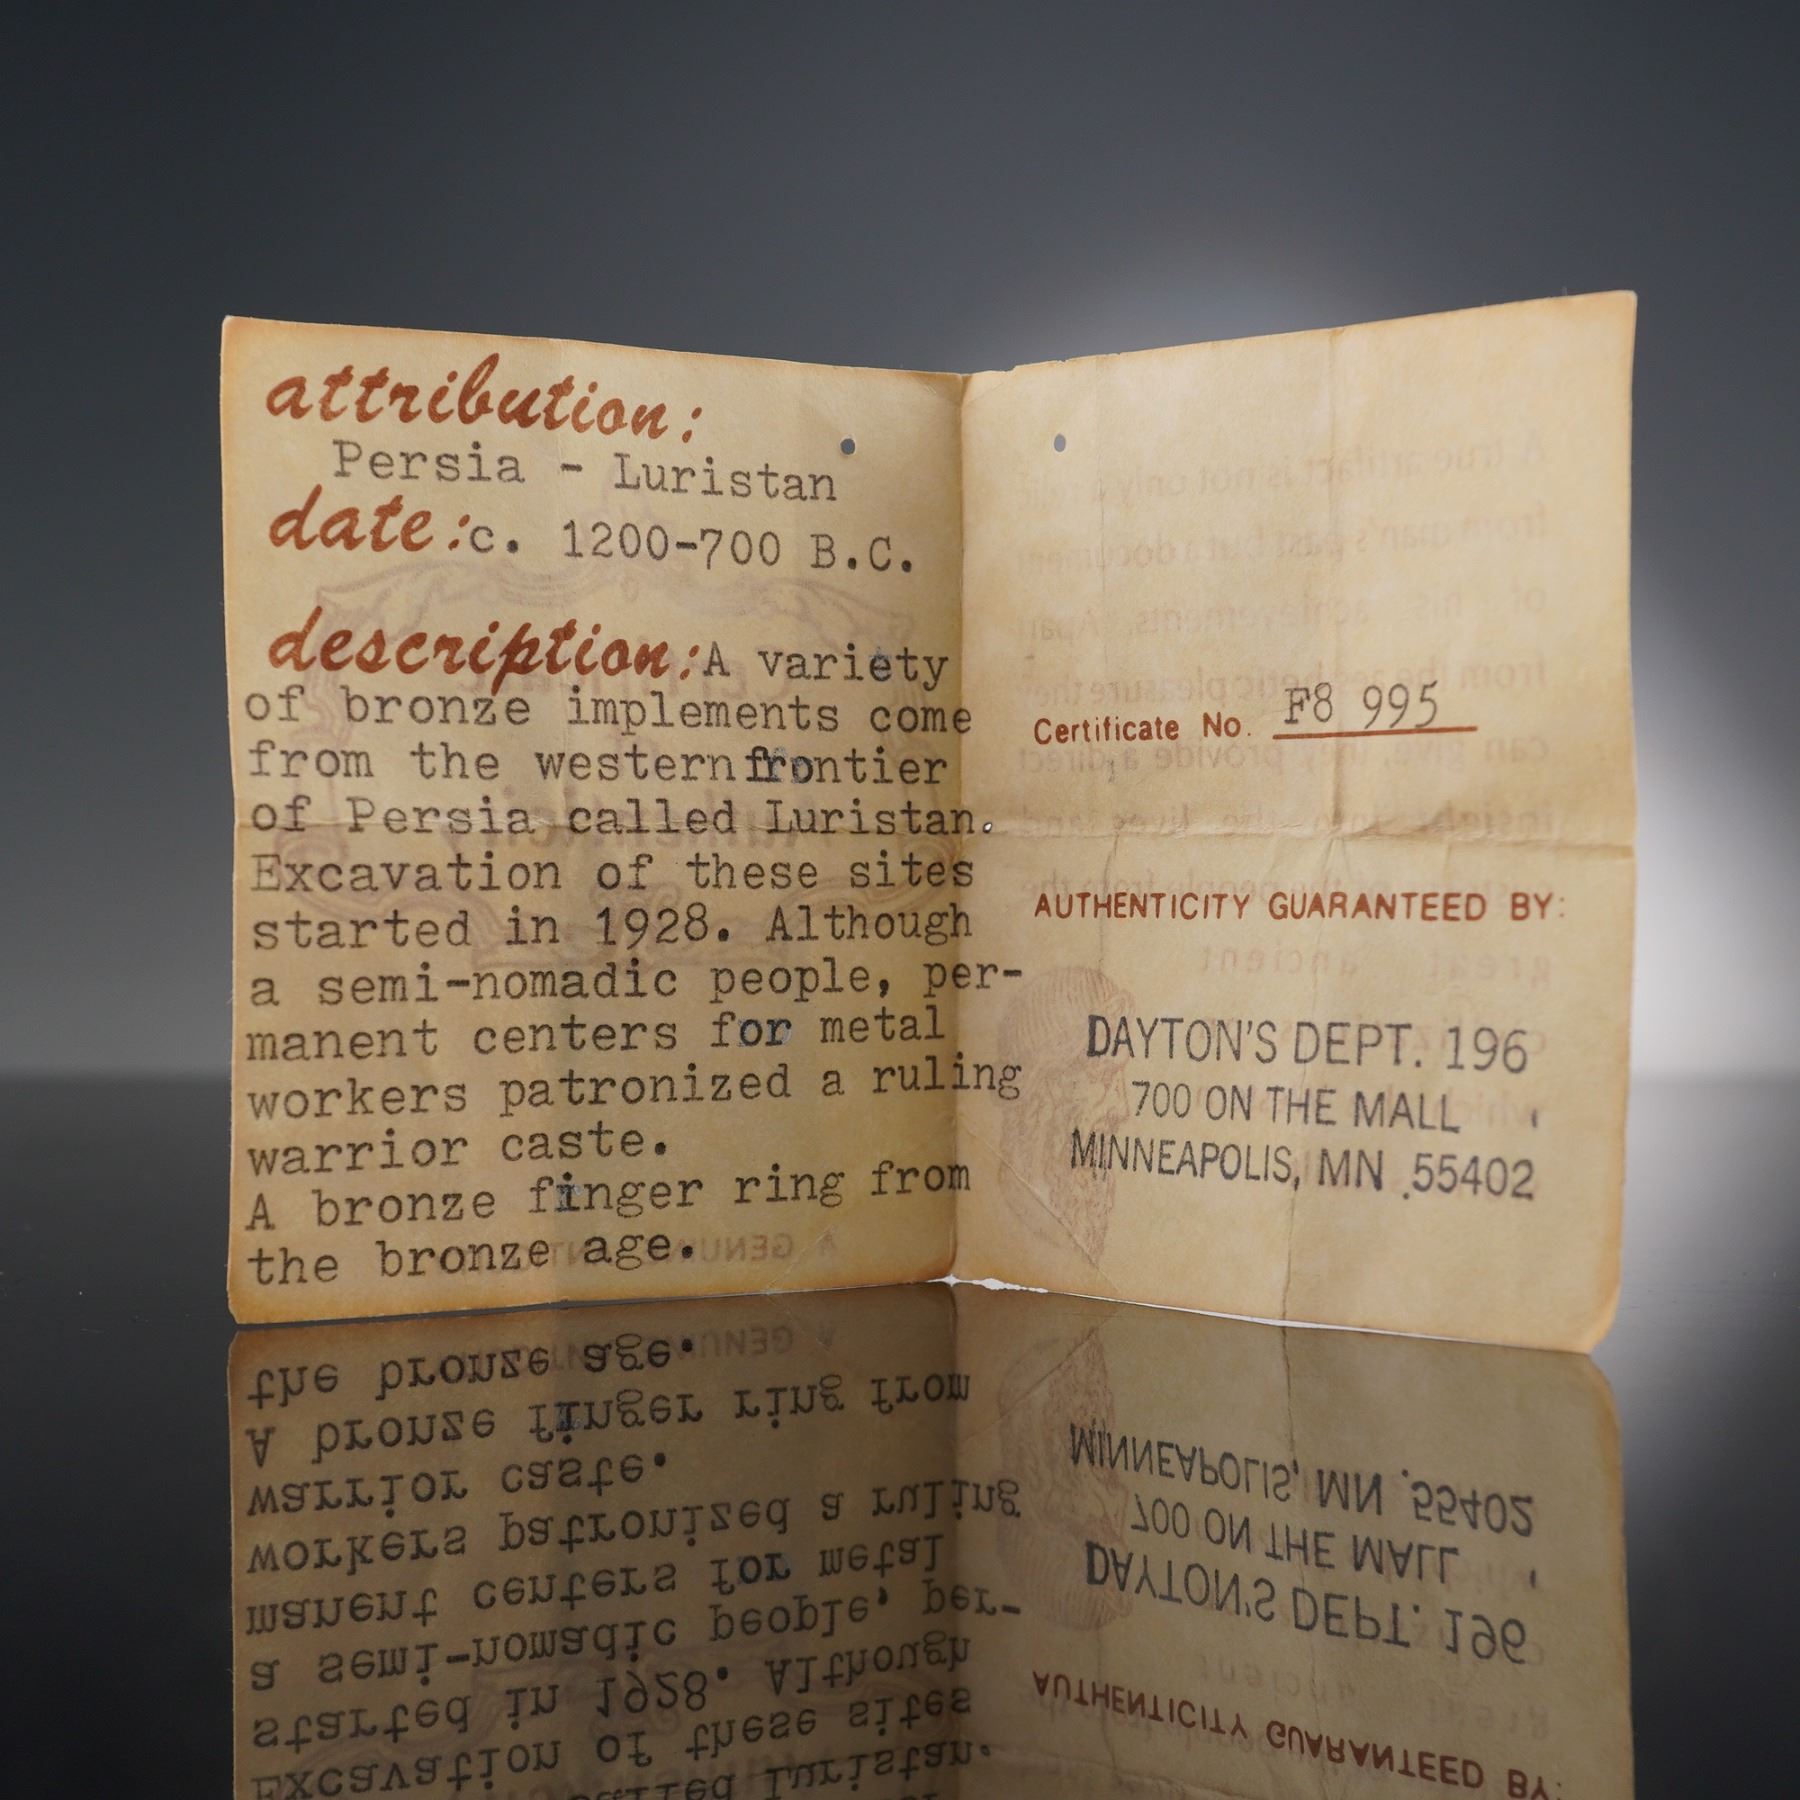 attribution:
Persia - Luristan
date: c. 1200-700 B.C.
description: A variety
of bronze implements come
from the western frontier
of Persia called Luristan.
Excavation of these sites
started in 1928. Although
a semi-nomadic people, per-
manent centers for metal
workers patronized a ruling
warrior caste.
A bronze finger ring from
the bronze age.
Certificate No. F8 995
AUTHENTICITY GUARANTEED BY:
DAYTON'S DEPT. 196
700 ON THE MALL
MINNEAPOLIS, MN .55402